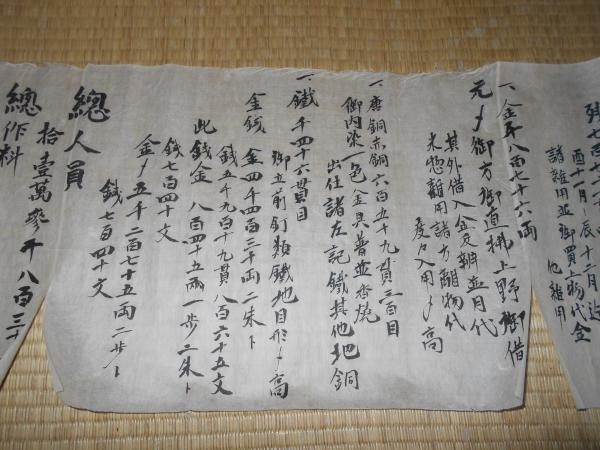 残七百六十二両
酉十一月ー辰十二月迄
諸雑用並御買上物代金
他雑用
一、金千八百七十六両
元〆御方御直拂上野御借
其外借入金及辨並月代
未惣雑用諸方雑物代
度々入用〆高
一、唐銅赤銅六百五十九貫三百目
御内染一色金具普並香焼
出住諸左記鐵其他地銅
一、鐵千四十六貫目
御立前釘類鐵地目形〆高
金銭 金四千四百三十両二朱ト
銭五千九百十九貫八百六十五文
此銭金 八百四十五両一歩二朱ト
銭七百四十文
金〆五千二百七十五両二歩ト
銭七百四十文
總人員
拾壹萬参千八百三十
總作料